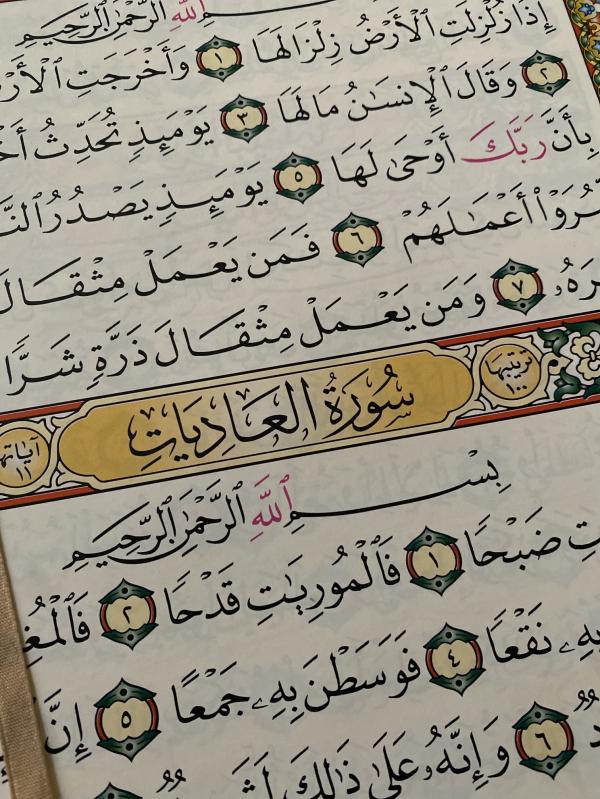 بِسْمِ ٱللَّهِ ٱلرَّحْمَٰنِ ٱلرَّحِيمِ
إِذَا زُلْزِلَتِ ٱلْأَرْضُ زِلْزَالَهَا ١ وَأَخْرَجَتِ
٢ وَقَالَ ٱلْإِنسَٰنُ مَا لَهَا ٣ يَوْمَئِذٍ تُحَدِّثُ
بِأَنَّ رَبَّكَ أَوْحَىٰ لَهَا ٥ يَوْمَئِذٍ يَصْدُرُ
أَعْمَٰلَهُمْ ٦ فَمَن يَعْمَلْ مِثْقَالَ
٧ وَمَن يَعْمَلْ مِثْقَالَ ذَرَّةٍ شَرًّا
ترتيبها ١٠٠ سُورَةُ العَادِيَاتِ ١١
بِسْمِ ٱللَّهِ ٱلرَّحْمَٰنِ ٱلرَّحِيمِ
ضَبْحًا ١ فَٱلْمُورِيَٰتِ قَدْحًا ٢
بِهِۦ نَقْعًا ٤ فَوَسَطْنَ بِهِۦ جَمْعًا ٥ إِنَّ
٦ وَإِنَّهُۥ عَلَىٰ ذَٰلِكَ